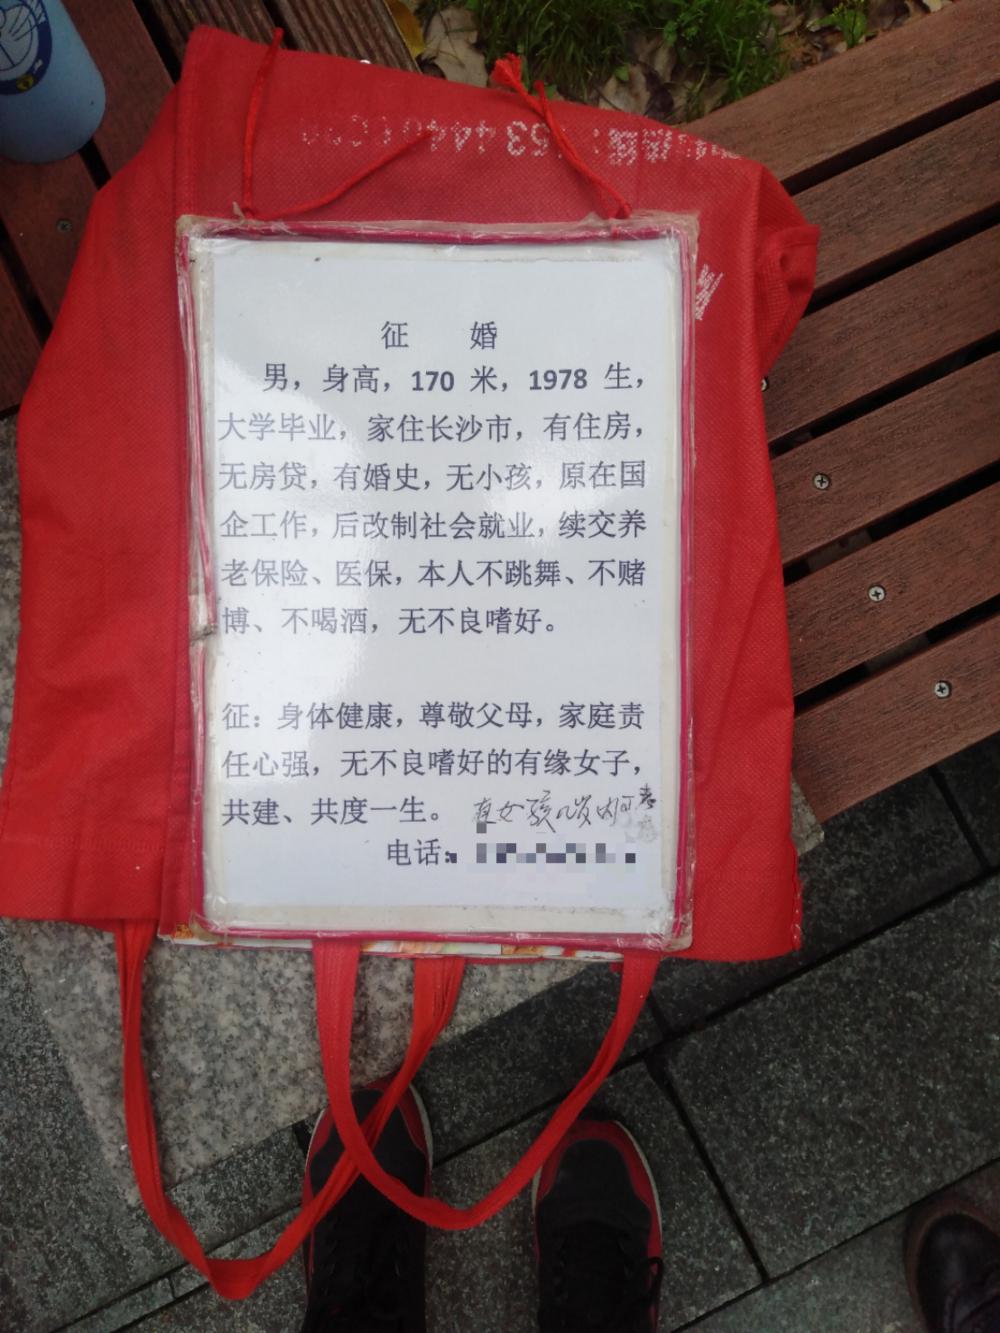 征 婚
男，身高，170 米，1978 生，
大学毕业，家住长沙市，有住房，
无房贷，有婚史，无小孩，原在国
企工作，后改制社会就业，续交养
老保险、医保，本人不跳舞、不赌
博、不喝酒，无不良嗜好。
征：身体健康，尊敬父母，家庭责
任心强，无不良嗜好的有缘女子，
共建、共度一生。有女孩 岁内可考
电话：